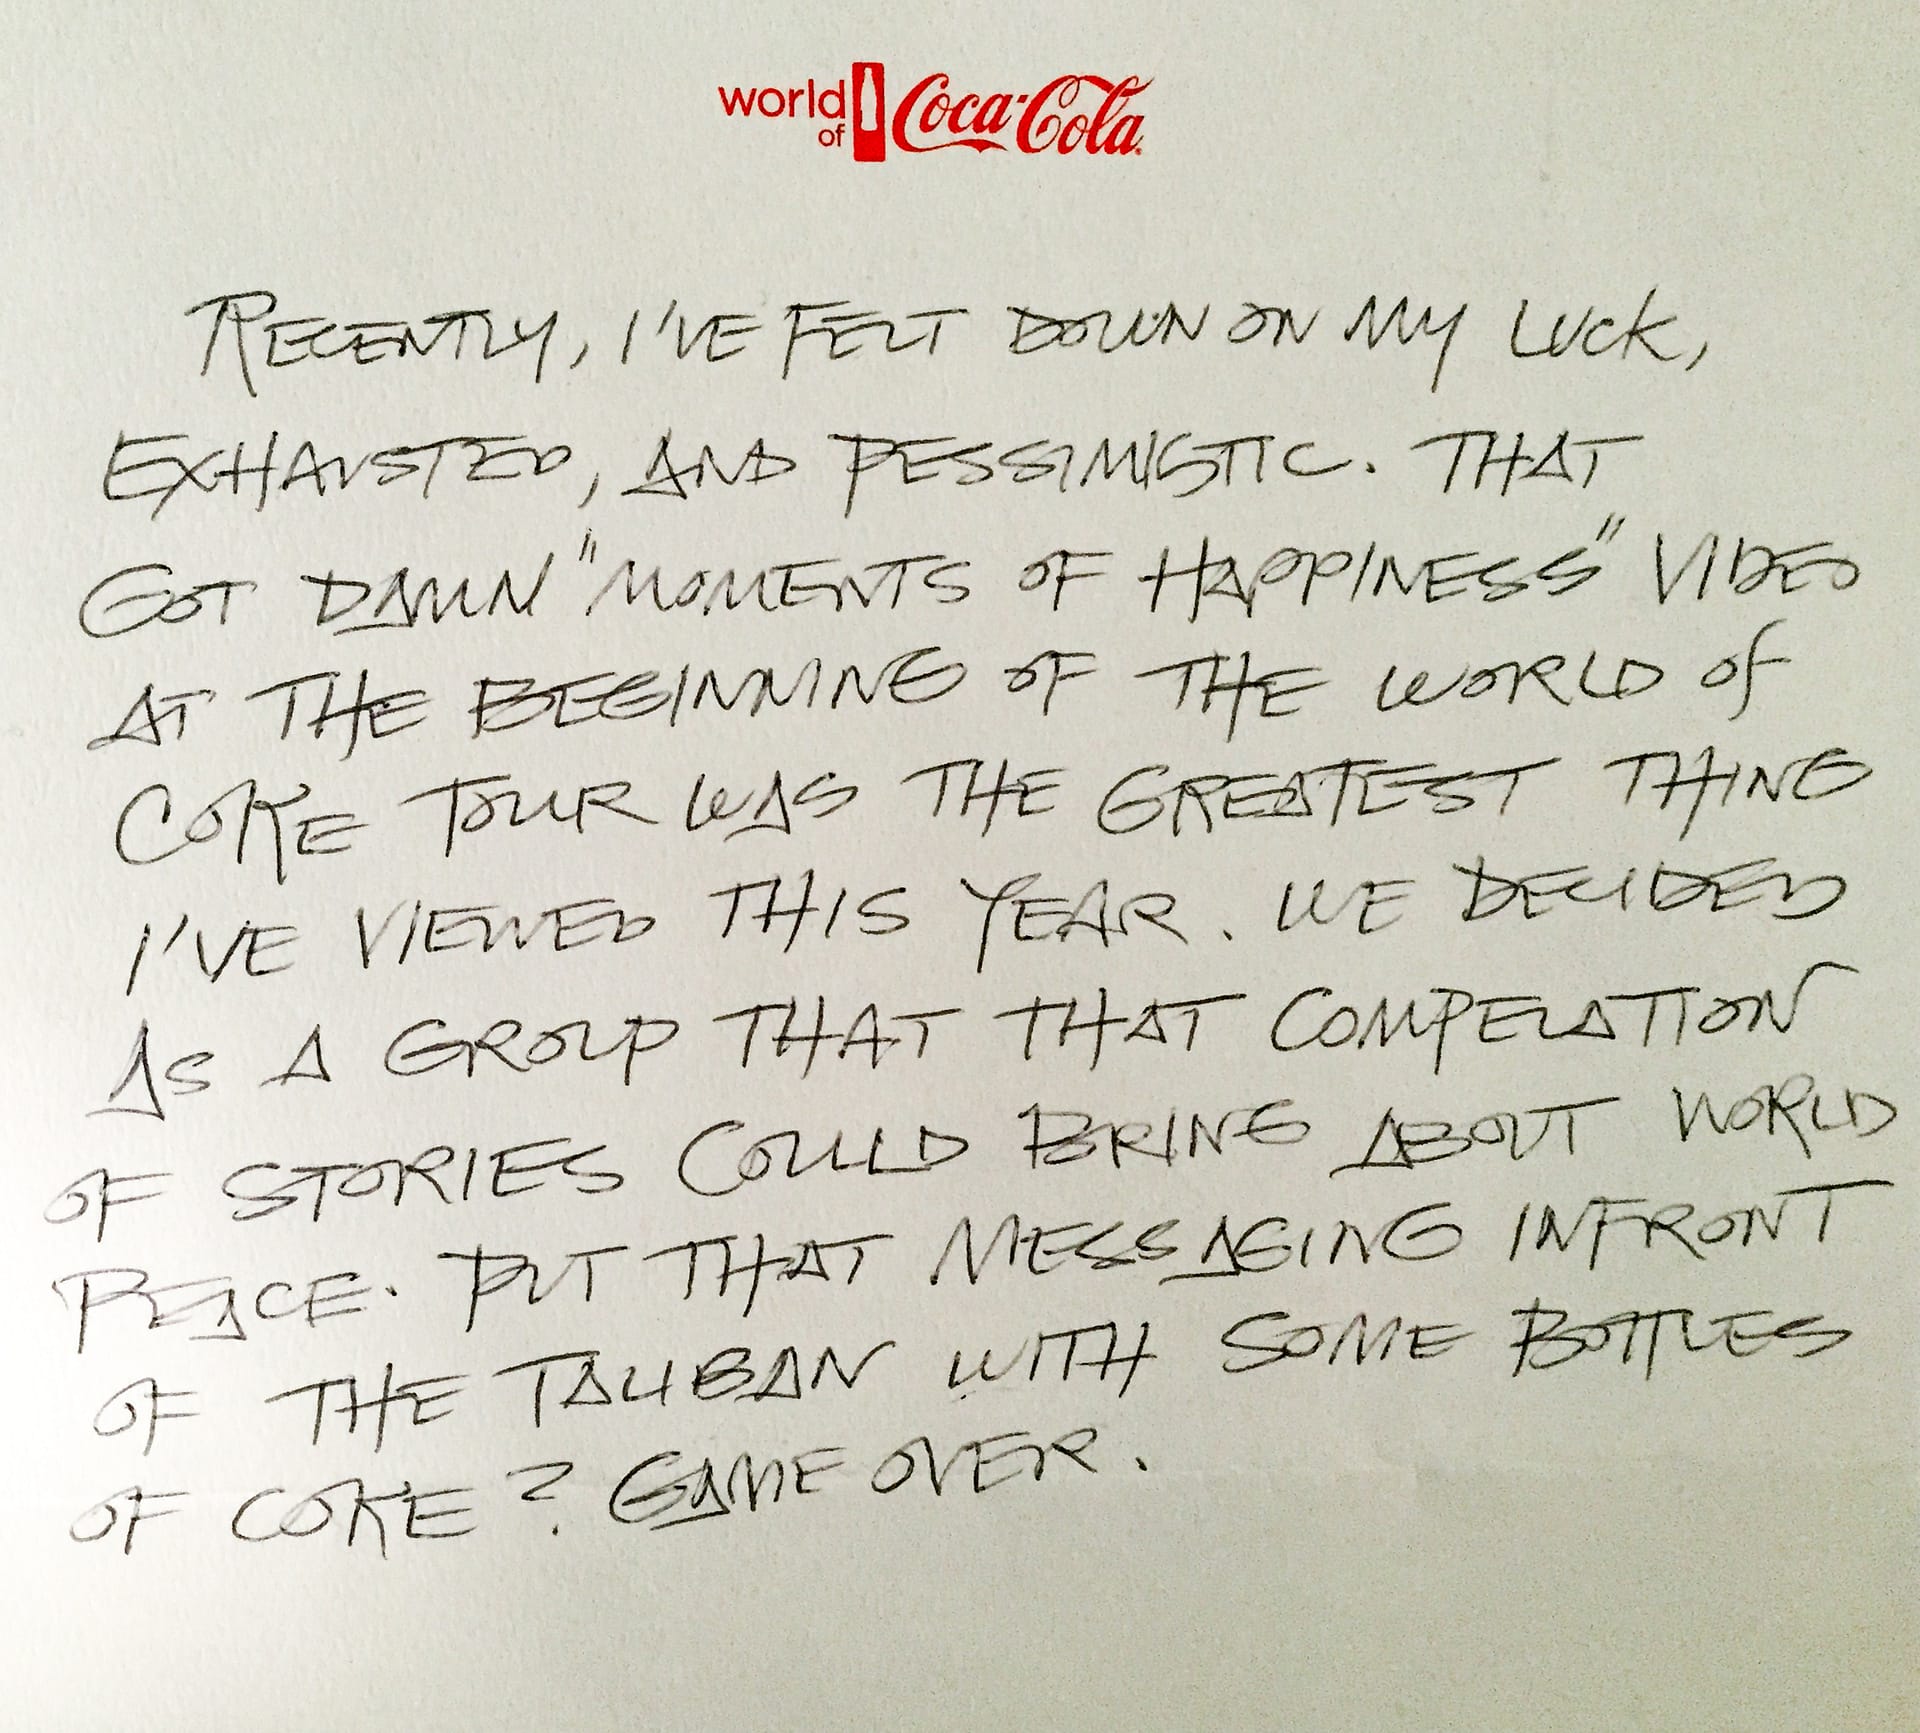 world of Coca-Cola
RECENTLY, I'VE FELT DOWN ON MY LUCK,
EXHAUSTED, AND PESSIMISTIC. THAT
GOT DAMN "MOMENTS OF HAPPINESS" VIDEO
AT THE BEGINNING OF THE WORLD OF
COKE TOUR WAS THE GREATEST THING
I'VE VIEWED THIS YEAR. WE DECIDED
AS A GROUP THAT THAT COMPELATION
OF STORIES COULD BRING ABOUT WORLD
PEACE. PUT THAT MESSAGING INFRONT
OF THE TALIBAN WITH SOME BOTTLES
OF COKE? GAME OVER.